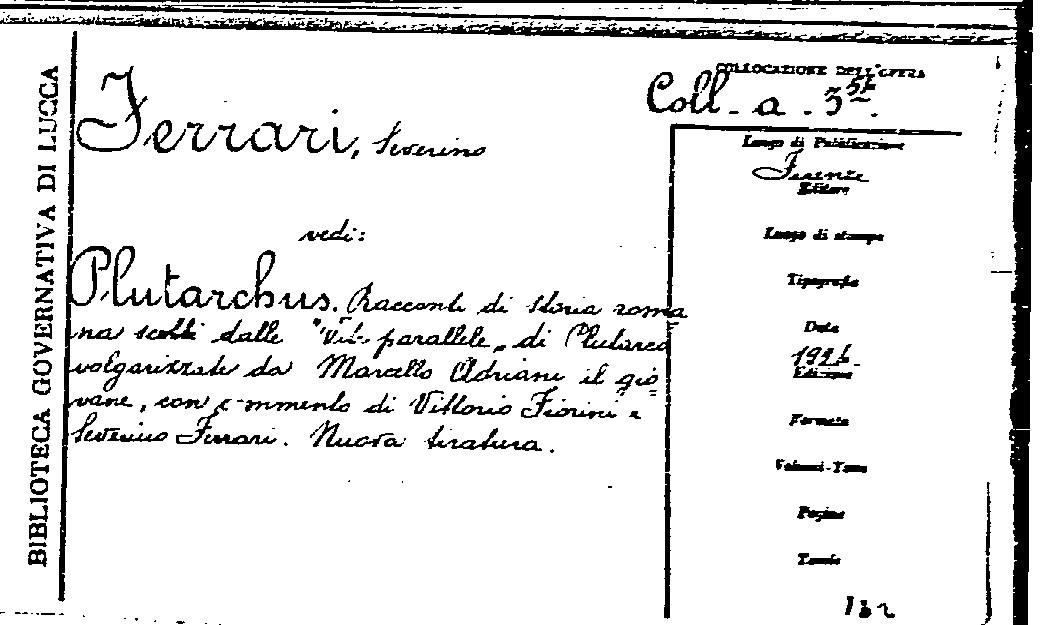 BIBLIOTECA GOVERNATIVA DI LUCCA
COLLOCAZIONE DELL'OPERA
Coll. a. 3
Ferrari, Severino
Luogo di Pubblicazione
Firenze
Editore
vedi:
Luogo di stampa
Plutarchus. Racconti di storia roma
Tipografia
na scelti dalle "Vite parallele" di Plutarco
Data
volgarizzate da Marcello Adriani il gio
Edizione
vane, con commento di Vittorio Fiorini e
Formato
Severino Ferrari. Nuova tiratura.
Volumi-Tomo
Pagine
Tavole
132